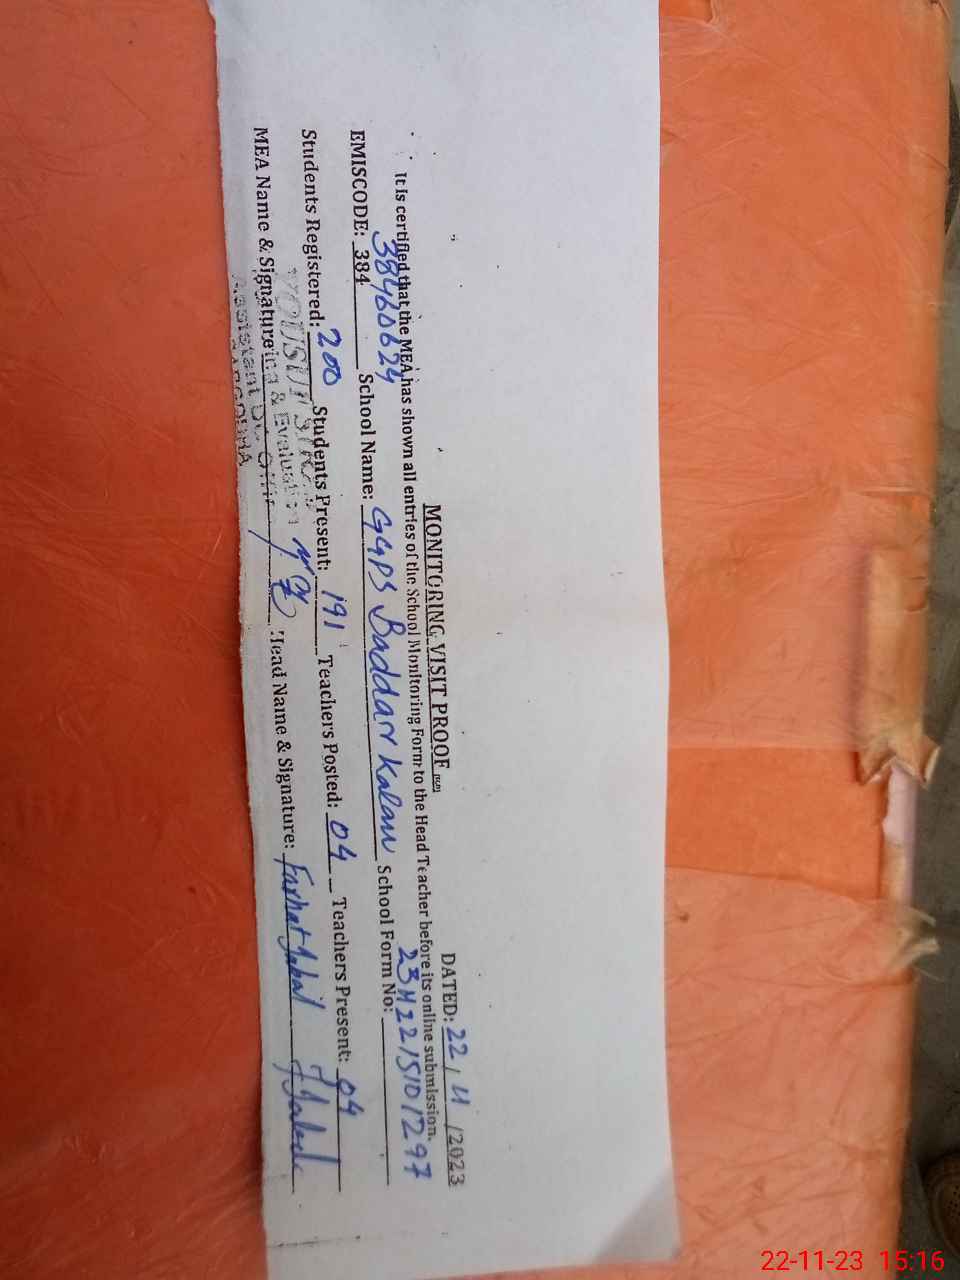 MONITORING VISIT PROOF
DATED: 22/11/2023
It is certified that the MEA has shown all entries of the School Monitoring Form to the Head Teacher before its online submission.
EMISCODE: 384 38460624 School Name: GGPS Baddar Kalan School Form No: 23112215101297
Students Registered: 200 Students Present: 191 Teachers Posted: 04 Teachers Present: 04
MEA Name & Signature Head Name & Signature: Farhat Iqbal
& Evaluation
Assistant
SARGODHA
22-11-23 15:16